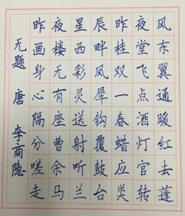 无题 唐 李商隐
昨夜星辰昨夜风
画楼西畔桂堂东
身无彩凤双飞翼
心有灵犀一点通
隔座送钩春酒暖
分曹射覆蜡灯红
嗟余听鼓应官去
走马兰台类转蓬